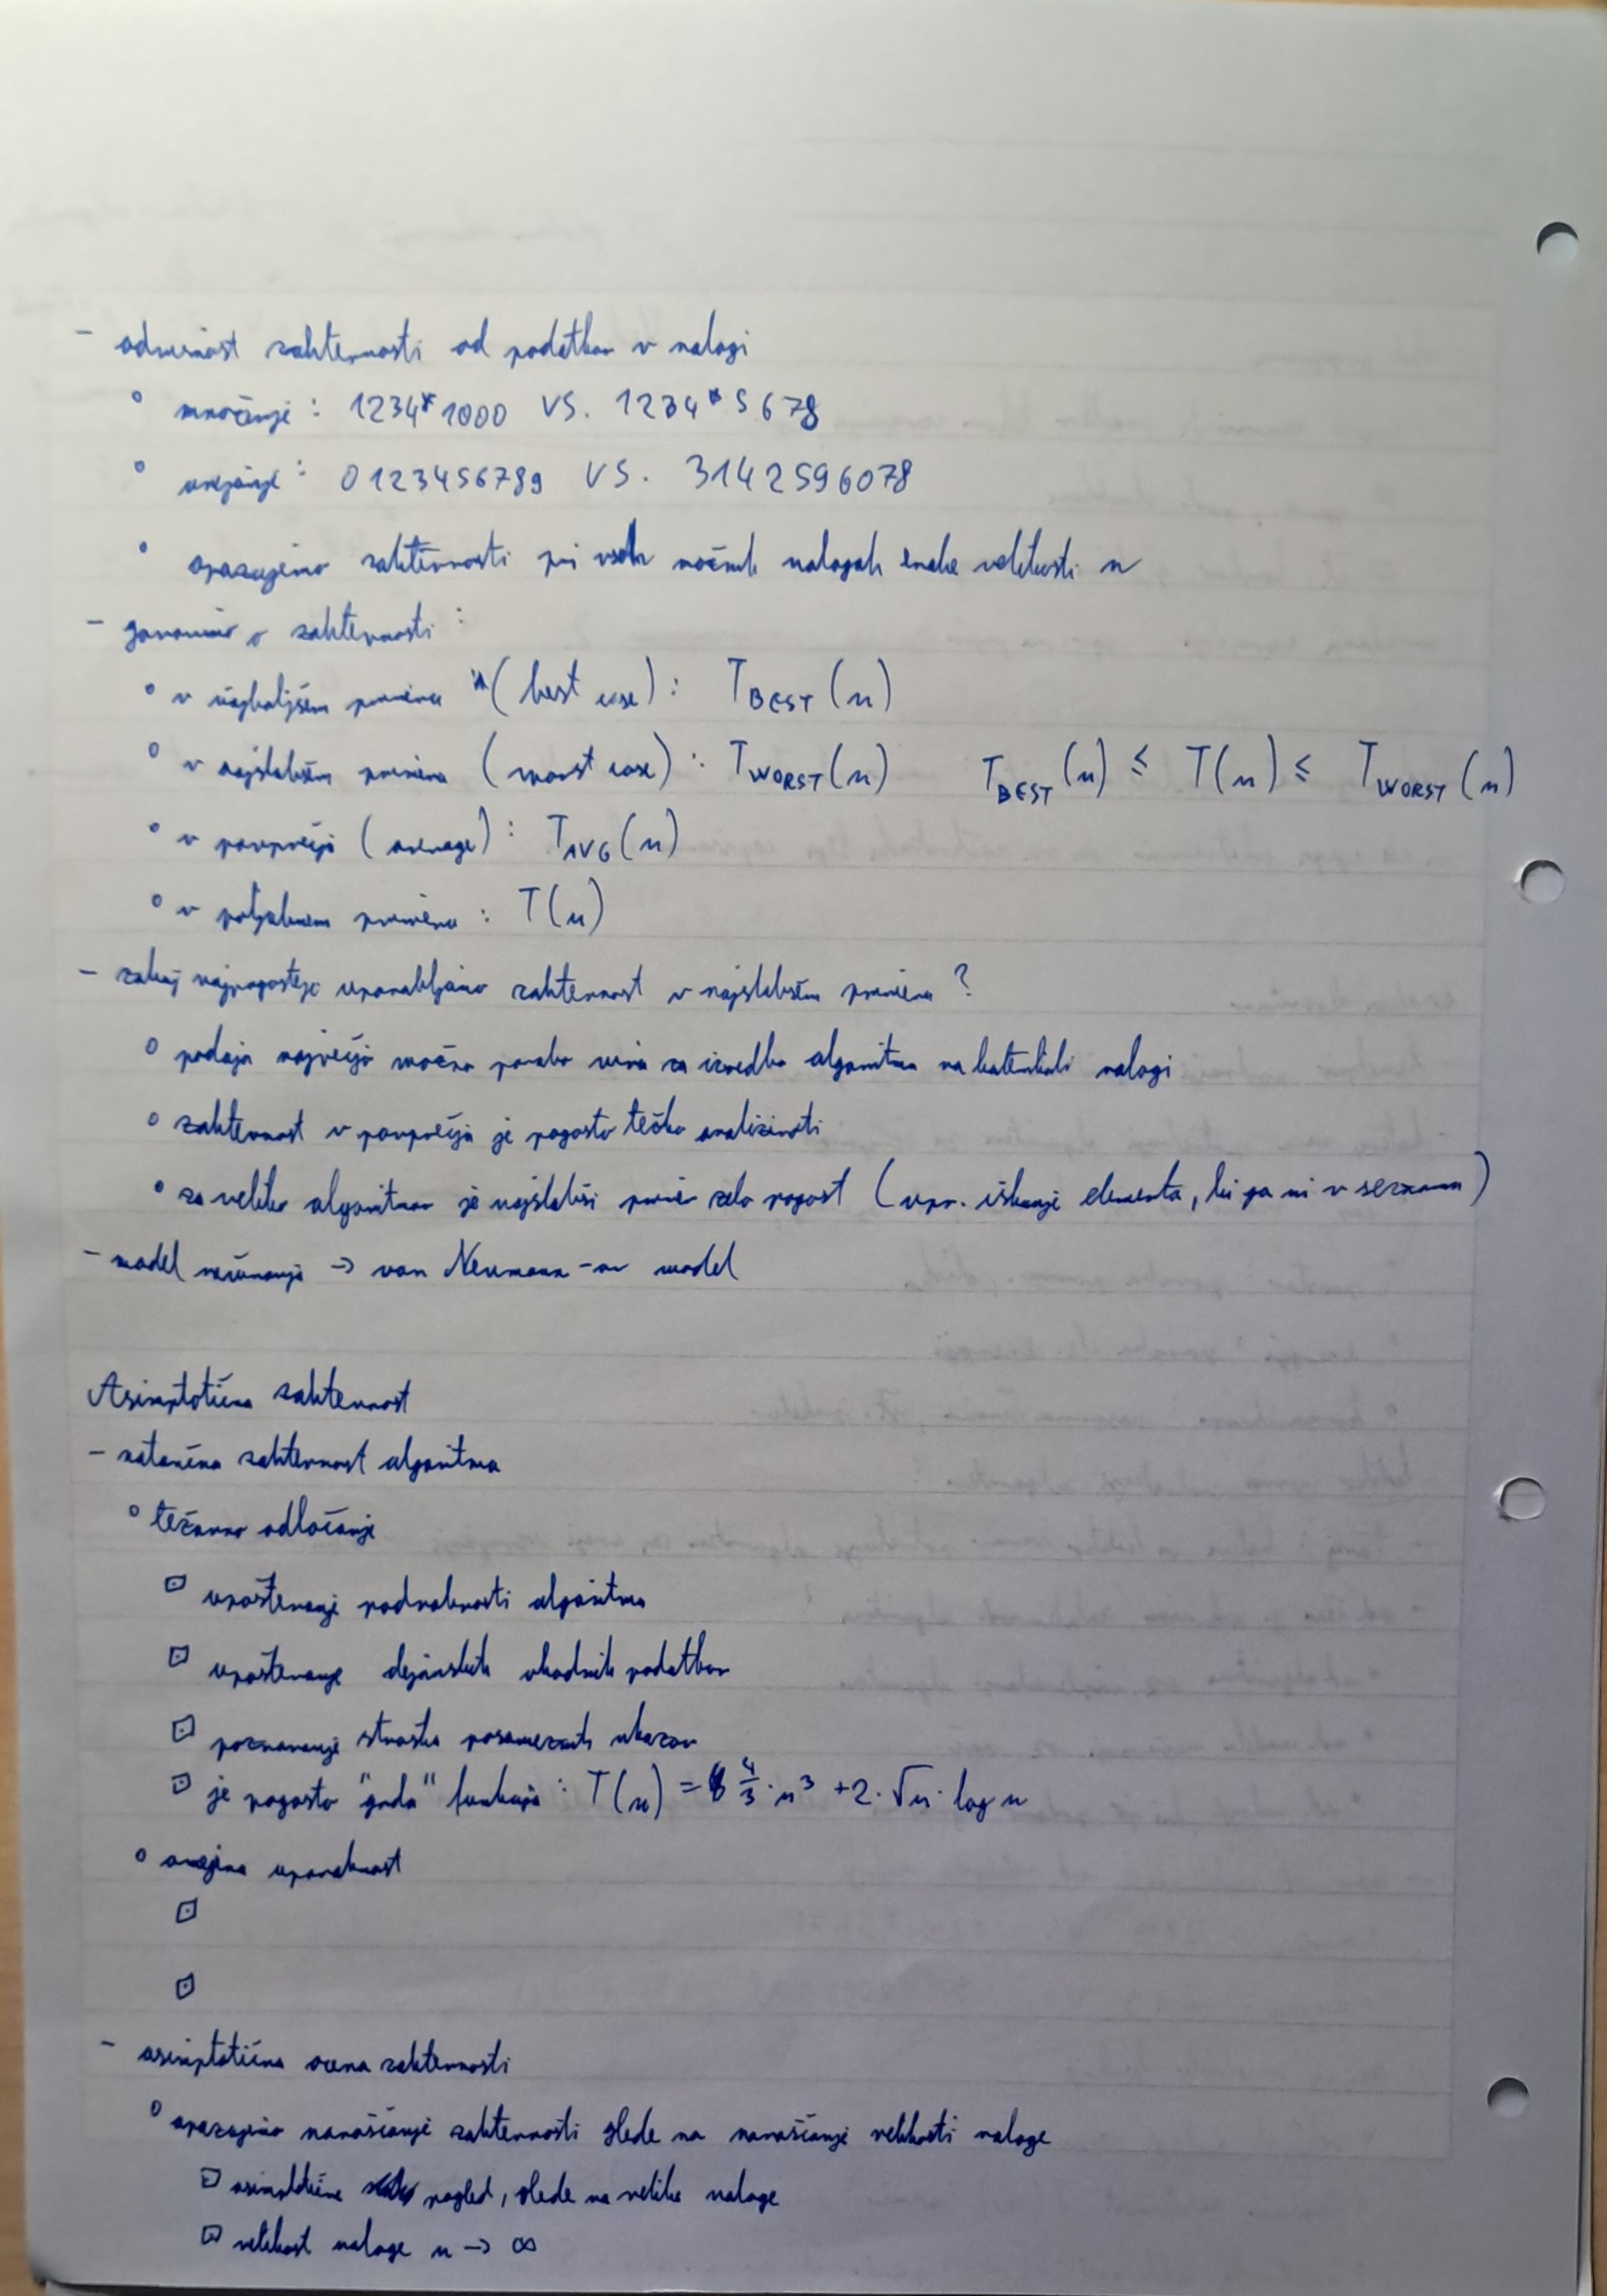 - odvisnost zahtevnosti od podatkov v nalogi
° množenje : 1234*1000 VS. 1234*5678
° urejanje : 0123456789 VS. 3142596078
° opazujemo zahtevnosti pri vseh možnih nalogah enake velikosti n
- govorimo o zahtevnosti :
° v najboljšem primeru (best case) : T_BEST(n)
° v najslabšem primeru (worst case) : T_WORST(n) T_BEST(n) ≤ T(n) ≤ T_WORST(n)
° v povprečju (average) : T_AVG(n)
° v poljubnem primeru : T(n)
- zakaj najpogosteje uporabljamo zahtevnost v najslabšem primeru ?
° podaja največjo možno porabo virov za izvedbo algoritma na katerikoli nalogi
° zahtevnost v povprečju je pogosto težko analizirati
° za veliko algoritmov je najslabši primer zelo pogost (npr. iskanje elementa, ki ga ni v seznamu)
- model računanja → von Neumann-ov model
Asimptotična zahtevnost
- natančna zahtevnost algoritma
° težavno določanje
▫ upoštevanje podrobnosti algoritma
▫ upoštevanje dejanskih vhodnih podatkov
▫ poznavanje stroška posameznih ukazov
▫ je pogosto "grda" funkcija : T(n) = 4/3 · n³ + 2 · √n · log n
° omejena uporabnost
▫
▫
- asimptotična ocena zahtevnosti
° opazujemo naraščanje zahtevnosti glede na naraščanje velikosti naloge
▫ asimptotične pogled, glede na velike naloge
▫ velikost naloge n → ∞